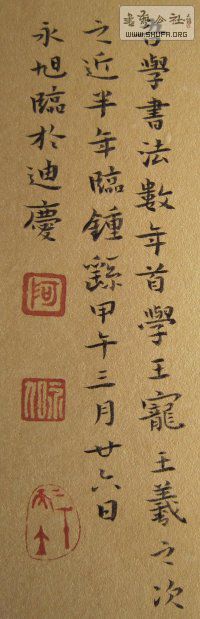 學書法數年首學王寵王羲之次
之近半年臨鍾繇甲午三月廿六日
永旭臨於迪慶
書法公社
WWW.SHUFA.ORG